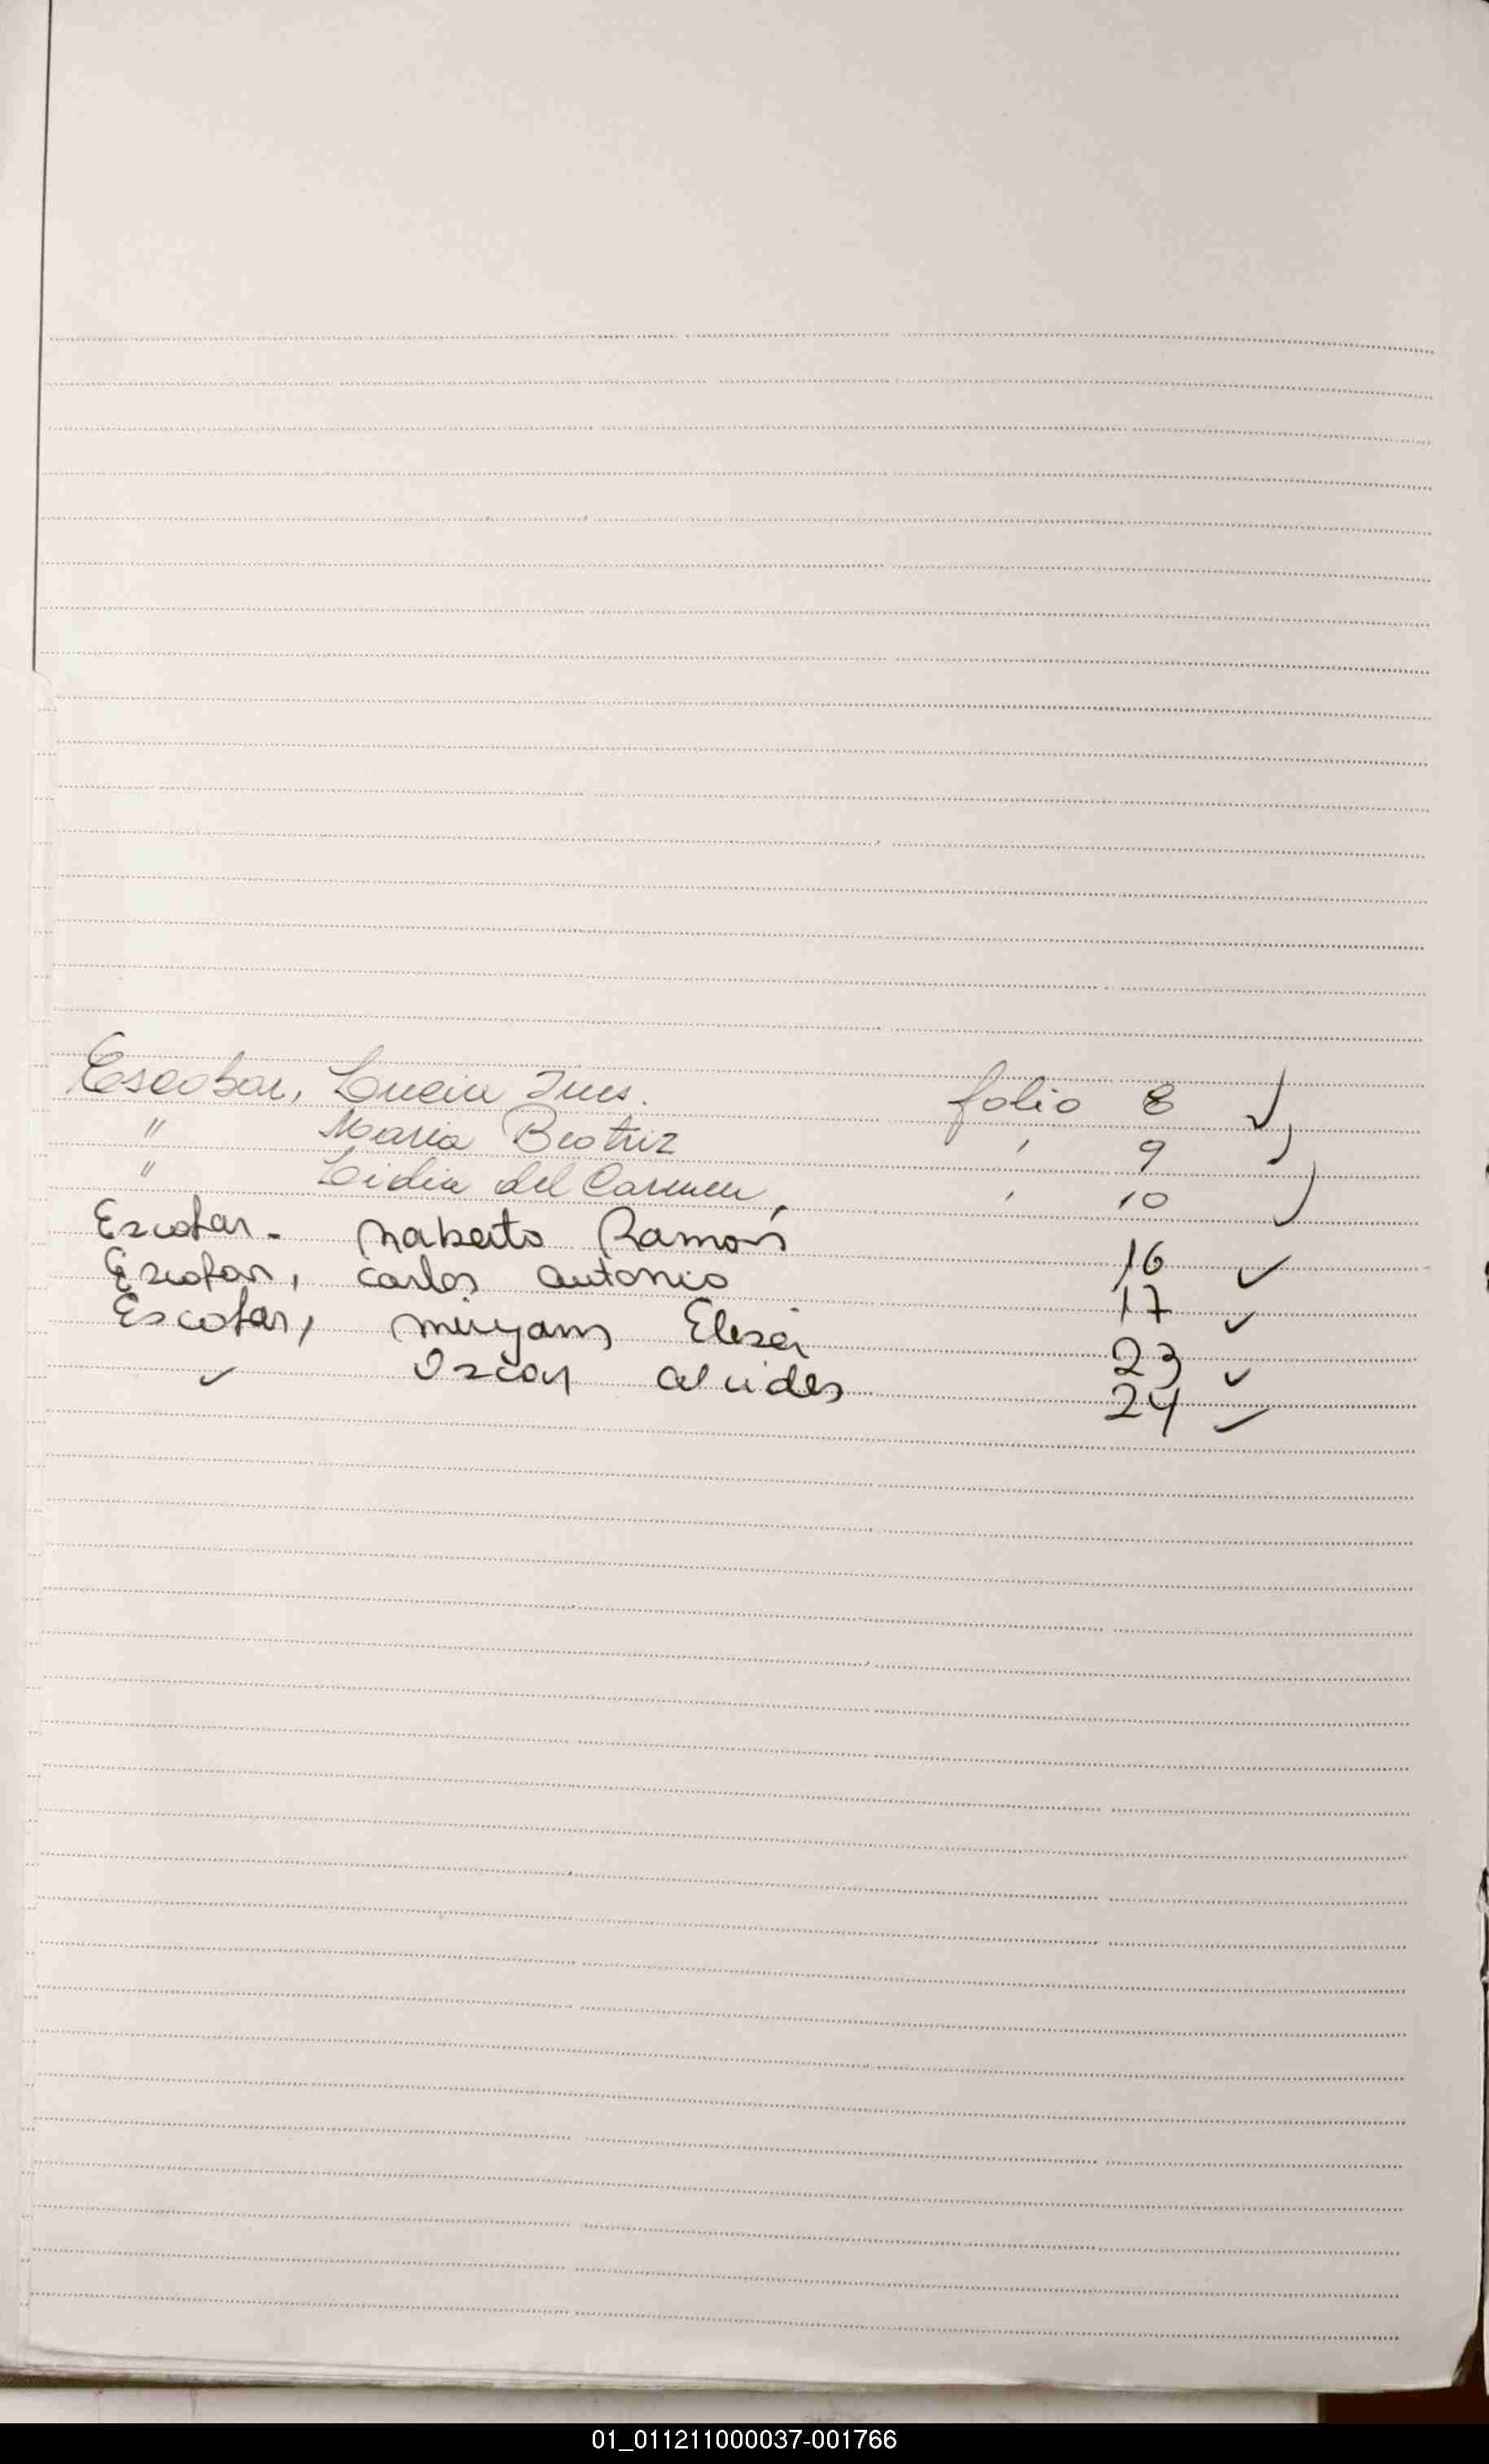 Escobar, Lucia Ines. folio 8 ✓
" Maria Beatriz ' 9
" Lidia del Carmen, ' 10
Escobar. Naberto Ramón 16 ✓
Escobar, Carlos Antonio 17 ✓
Escobar, Miryam Elisa 23 ✓
✓ Oscar Alcides 24 ✓
01_011211000037-001766